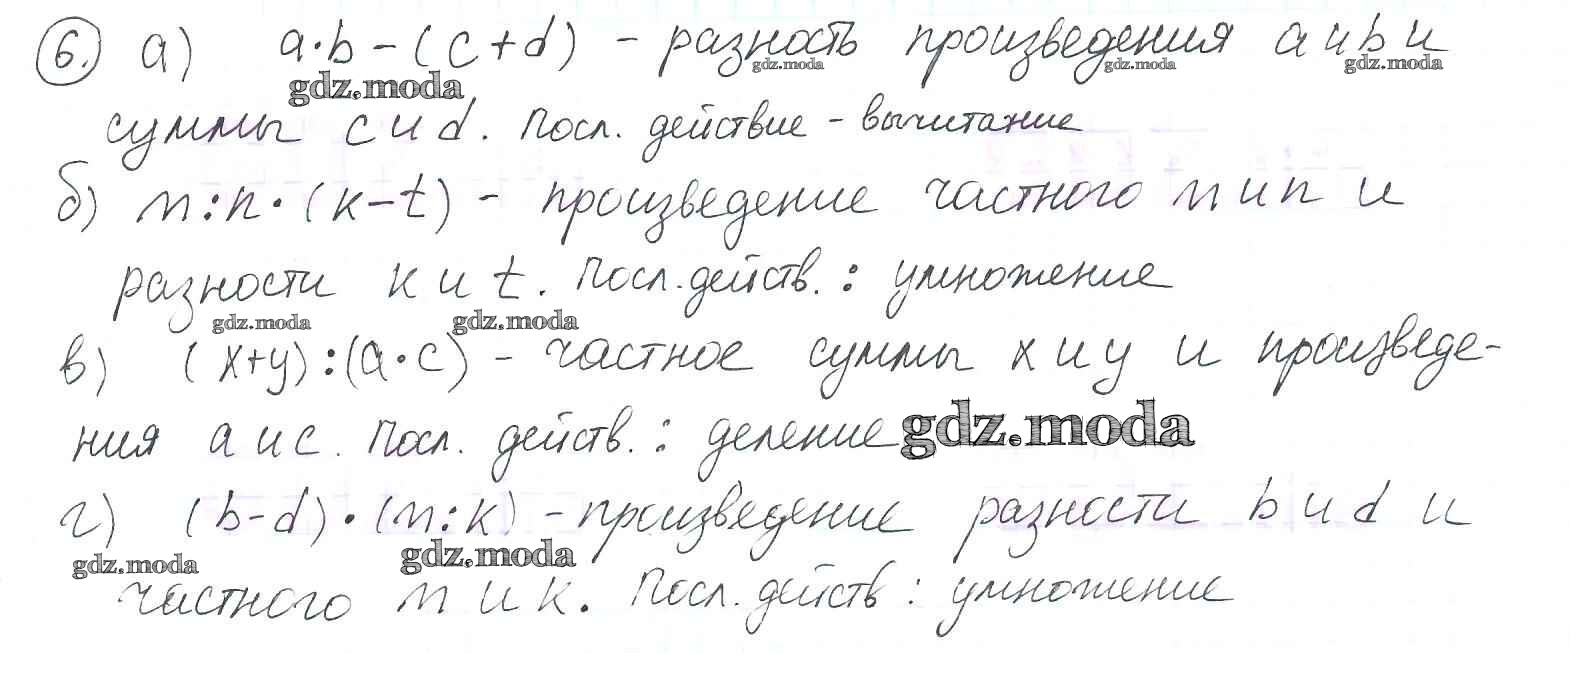 6. а) a·b - (c+d) - разность произведения a и b и
gdz.moda gdz.moda gdz.moda gdz.moda
суммы c и d. Посл. действие - вычитание
б) m:n·(k-t) - произведение частного m и n и
разности k и t. Посл. действ.: умножение
gdz.moda gdz.moda
в) (x+y):(a·c) - частное суммы x и y и произведе-
ния a и c. Посл. действ.: деление gdz.moda
г) (b-d)·(m:k) - произведение разности b и d и
gdz.moda gdz.moda
частного m и k. Посл. действ: умножение